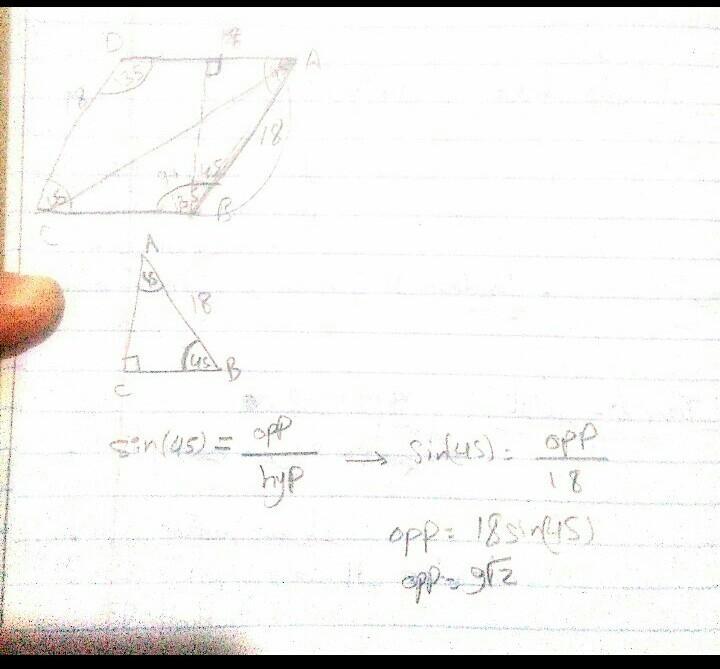 D
A
135
18
18
45
135
B
C
A
45
18
45
B
C
sin(45) = opp / hyp → sin(45) = opp / 18
opp = 18 sin(45)
opp = 9√2